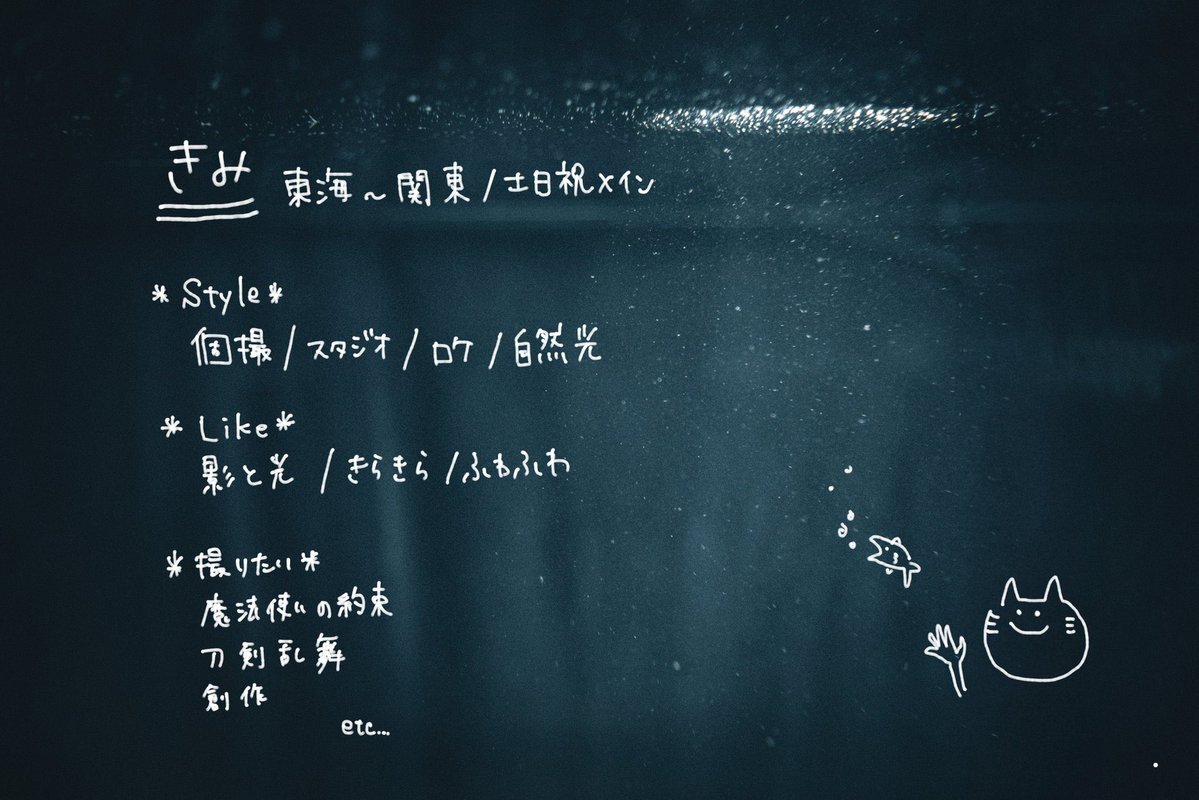 きみ 東海～関東/土日祝メイン
*Style*
個撮/スタジオ/ロケ/自然光
*Like*
影と光/きらきら/ふわふわ
*撮りたい*
魔法使いの約束
刀剣乱舞
創作
etc...